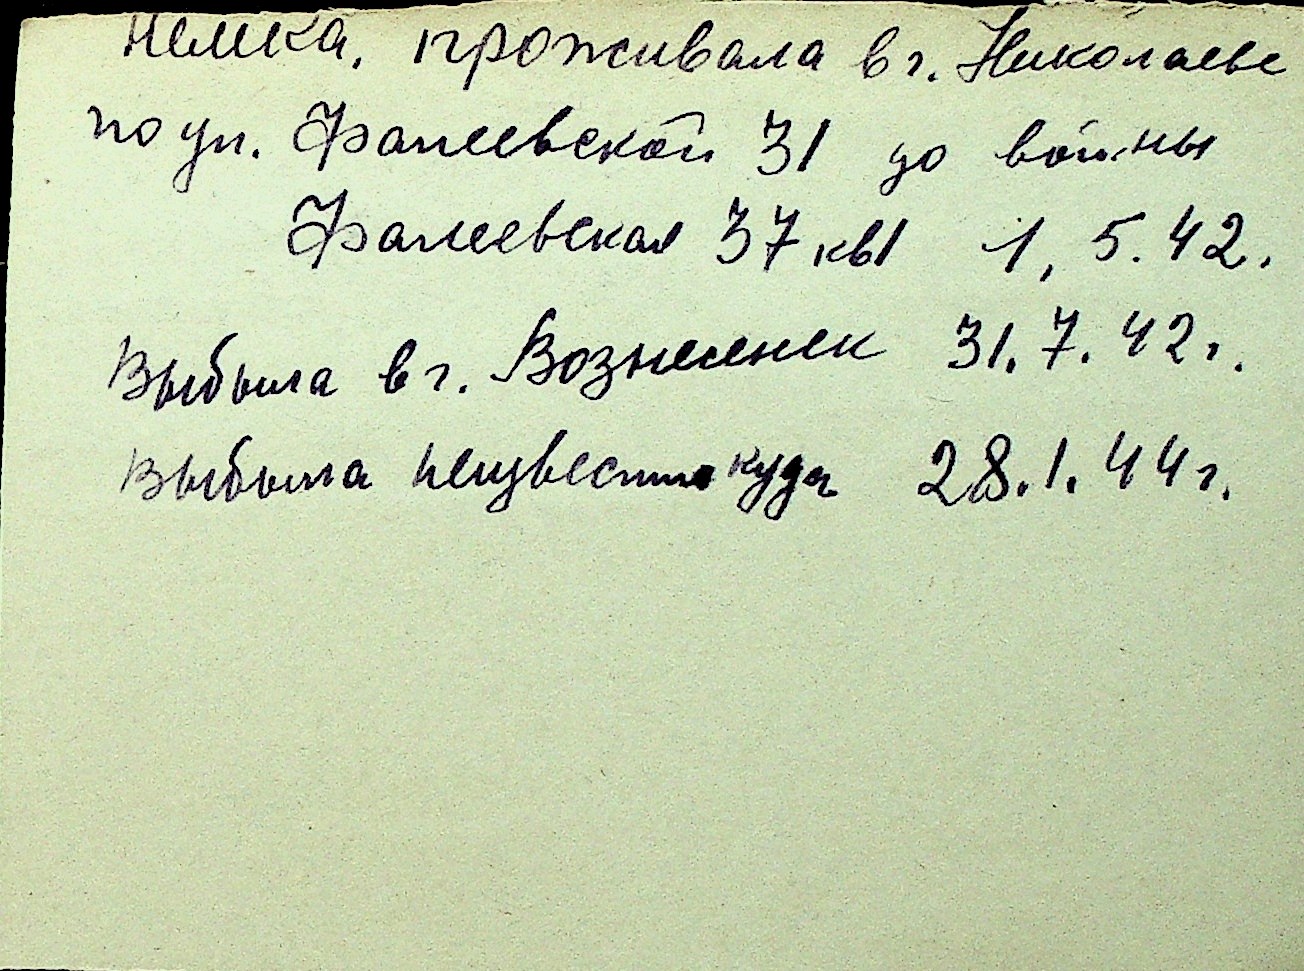 немка, проживала в г. Николаеве
по ул. Фалеевской 31 до войны
Фалеевская 37 кв1 1, 5. 42.
Выбыла в г. Вознесенск 31. 7. 42 г.
выбыла неизвестно куда 28. 1. 44 г.